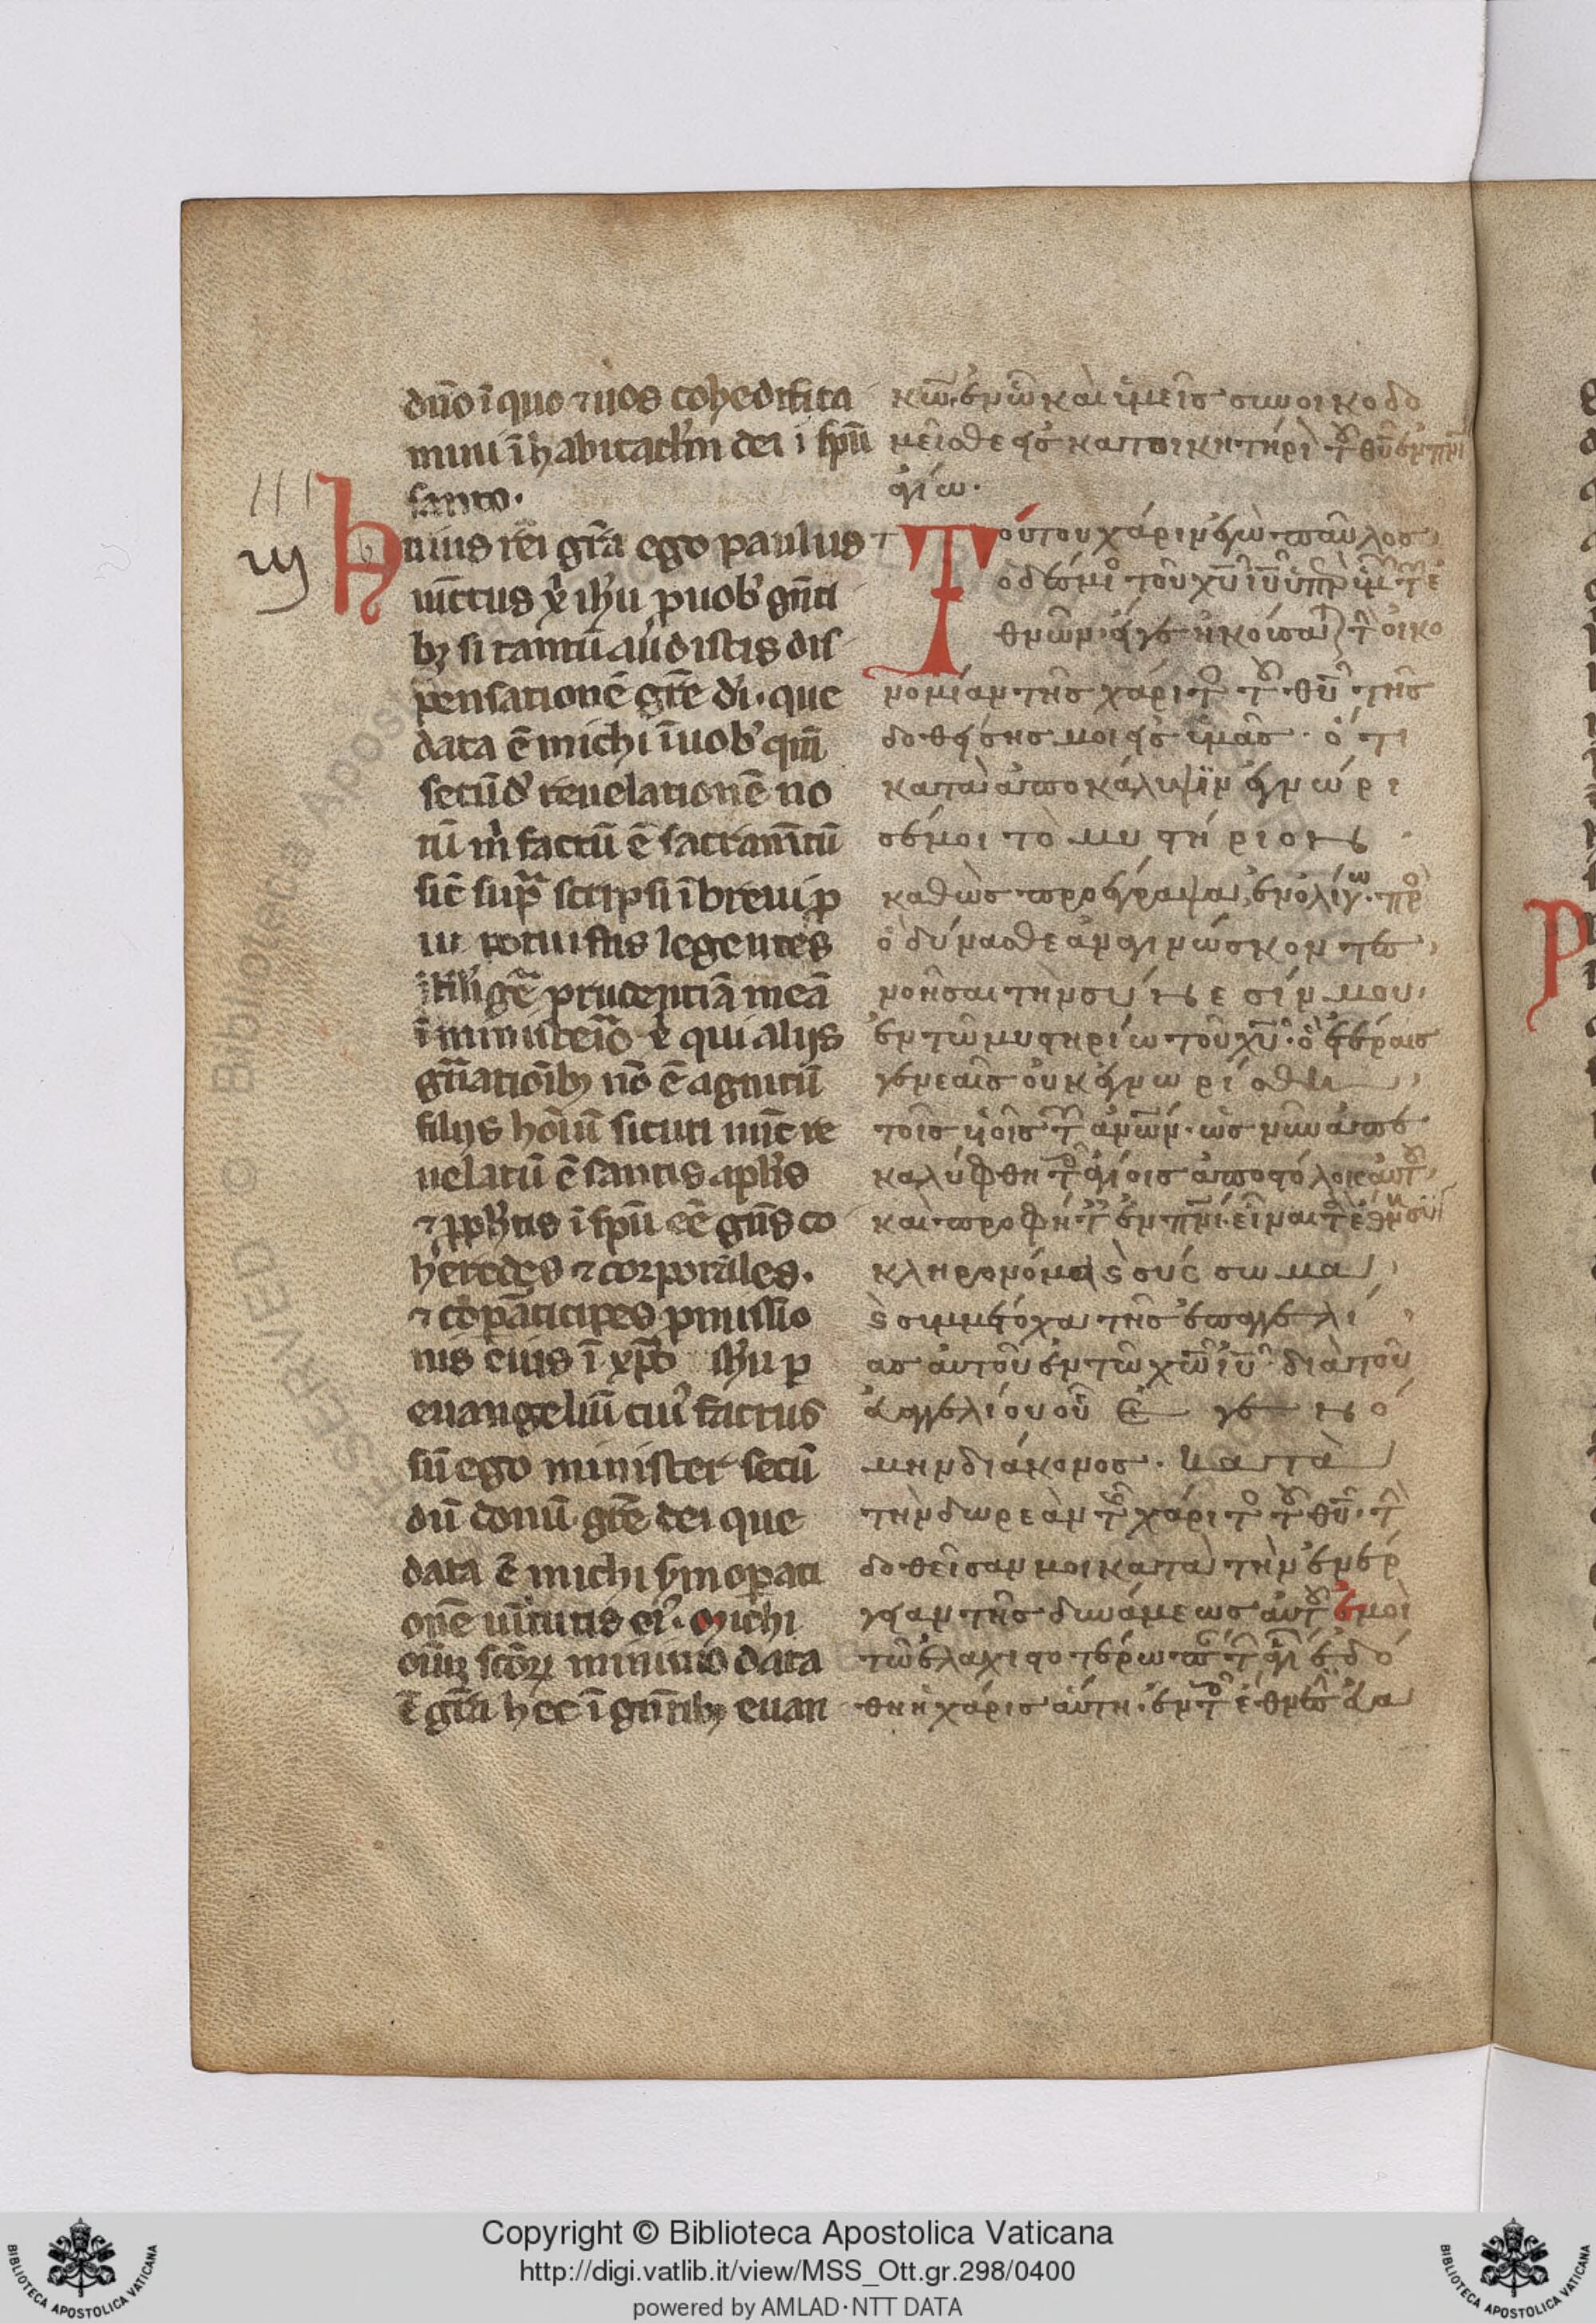 dn̄o ī quo ⁊ uos cohedifica
mini ī habitacl'm dei ī sp̄u
santo.
III
iij
Huius rei gr̄a ego paulus
uīctus xp̄i ih̄u p uob' gn̄ti
bꝫ si tamū audistis dis
pensationē gr̄e di. que
data ē michi ī uob' qm̄
secūd' reuelationē no
tū m̄ factū ē sacram̄tū
sic̄ supͣ scripsi ī breui ꝓ
ut potuistis legentes
ītilligͤe prudentiā meā
ī ministeͥo
gn̄ationibꝫ nō ē agnitū
filijs hoīuī sicuti nūc re
uelatū ē santis aplis
⁊ ꝓphetis ī sp̄u eē gn̄s co
heredes ⁊ corporales.
⁊ cop̄aticipes ꝓmissio
nis eius ī xp̄o ih̄u p
euangeliū cui' factus
sū ego minister secū
dū donū gr̄e dei que
data ē michi
onē uirtutis ei'. Michi
oīuꝫ scōrꝫ minimo data
ē gr̄a hec ī gn̄tibꝫ euan
κω̄ ἐν ὧ καὶ ὑμεῖσ συνοικοδο
μεῖσθε εἰσ κατοικητήρι τ θῡ ἐν πν̄ι
ἁγίω.
Τούτου χάριν ἐγὼ παῦλοσ
ὁ δέσμι τοῦ χῡ ἰῡ ὑπὲρ ὑμ τ ἐ
θνῶν εἴγε ἠκούσα τ οἰκο
νομίαν τῆσ χάριτ τ θῡ τῆσ
δοθείσησ μοι εἰσ ὑμᾶσ. ὅτι
κατὰ ἀποκάλυψϊν ἐγνώρι
σέ μοι τὸ μυστήριον
καθὼσ προέγραψα ἐν ὀλίγω. πρ
ὃ δύνασθε ἀναγινώσκοντεσ
νοῆσαι τὴν σύνεσίν μου,
ἐν τῶ μυστηρίω τοῦ χῡ. ὃ ἑτέραισ
γενεαῖσ οὐκ ἐγνωρίσθη
τοῖσ υἱοῖσ τ ἀν̄ων. ὡσ νῦν ἀπε
καλύφθη τ ἁγίοισ ἀποστόλοισ αὐτ
καὶ προφήτ ἐν πν̄ι. εἶναι τ ἔθν συ
κληρονόμα ϛ σύσσωμα
ϛ συμμέτοχα τῆσ ἐπαγγελί
ασ αὐτοῦ ἐν τῶ χω̄ ἰῡ. διὰ τοῦ
εὐαγγελίου οὗ ἐγενό
μην διάκονοσ. κατὰ
τὴν δωρεὰν τ χάριτ τ θῡ. τ
δοθεῖσαν μοι κατὰ τὴν ἐνέρ
γειαν τῆσ δυνάμεωσ αὐτ ἐμοὶ
τῶ ἐλαχιστοτέρω π τ ἁγι ἐδό
θη ἡ χάρισ αὕτη. ἐν τ ἔθνεσ εὐα
Copyright © Biblioteca Apostolica Vaticana
http://digi.vatlib.it/view/MSS_Ott.gr.298/0400
powered by AMLAD·NTT DATA
BIBLIOTECA APOSTOLICA VATICANA
BIBLIOTECA APOSTOLICA VATICANA